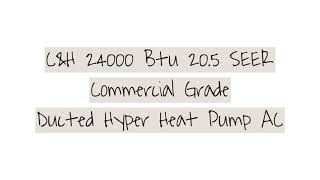 C&H 24000 Btu 20.5 SEER
Commercial Grade
Ducted Hyper Heat Pump AC